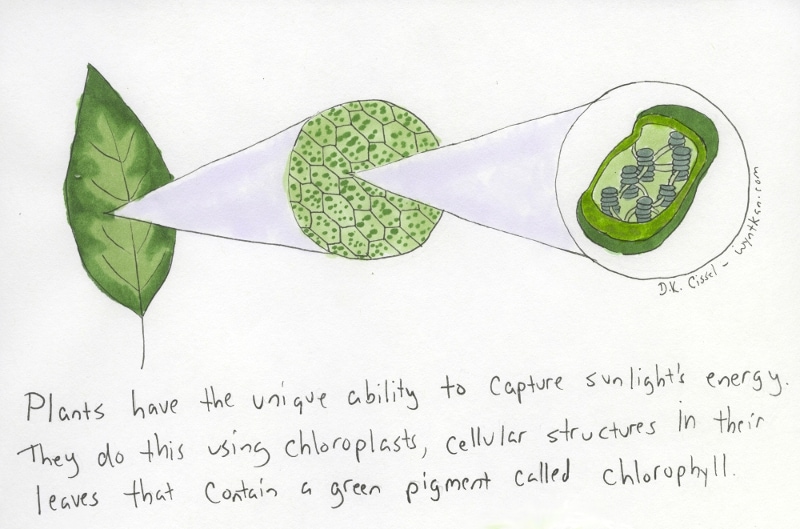 D.K. Cissel - wyntken.com
Plants have the unique ability to capture sunlight's energy.
They do this using chloroplasts, cellular structures in their
leaves that contain a green pigment called chlorophyll.